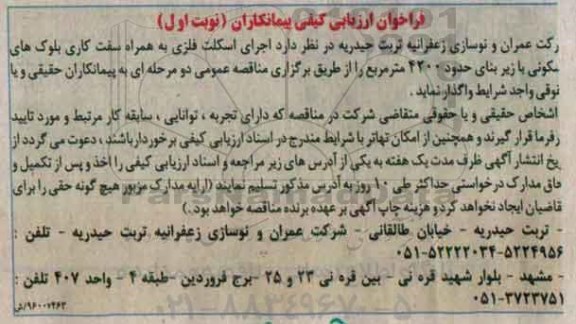 فراخوان ارزیابی کیفی پیمانکاران (نوبت اول)
رکت عمران و نوسازی زعفرانیه تربت حیدریه در نظر دارد اجرای اسکلت فلزی به همراه سفت کاری بلوک های
سکونی با زیر بنای حدود ۴۲۰۰ مترمربع را از طریق برگزاری مناقصه عمومی دو مرحله ای به پیمانکاران حقیقی و یا
نوقی واجد شرایط واگذار نماید .
اشخاص حقیقی و یا حقوقی متقاضی شرکت در مناقصه که دارای تجربه ، توانایی ، سابقه کار مرتبط و مورد تایید
رفرما قرار گیرند و همچنین از امکان تهاتر با شرایط مندرج در اسناد ارزیابی کیفی برخوردار باشند ، دعوت می گردد از
ریخ انتشار آگهی ظرف مدت یک هفته به یکی از آدرس های زیر مراجعه و اسناد ارزیابی کیفی را اخذ و پس از تکمیل و
ماق مدارک درخواستی حداکثر طی ۱۰ روز به آدرس مذکور تسلیم نمایند (ارایه مدارک مزبور هیچ گونه حقی را برای
قاضیان ایجاد نخواهد کرد و هزینه چاپ آگهی بر عهده برنده مناقصه خواهد بود.)
- تربت حیدریه - خیابان طالقانی - شرکت عمران و نوسازی زعفرانیه تربت حیدریه - تلفن :
۰۵۱-۵۲۲۲۲۰۳۴-۵۲۲۴۹۵۶
- مشهد - بلوار شهید قره نی - بین قره نی ۲۳ و ۲۵ - برج فروردین -طبقه ۴ - واحد ۴۰۷ تلفن :
۰۵۱-۳۷۲۳۷۵۱
۹۶۰۰۷۴۶۳/ش
۰۲۱-۸۸۳۴۹۶۷۰-۵